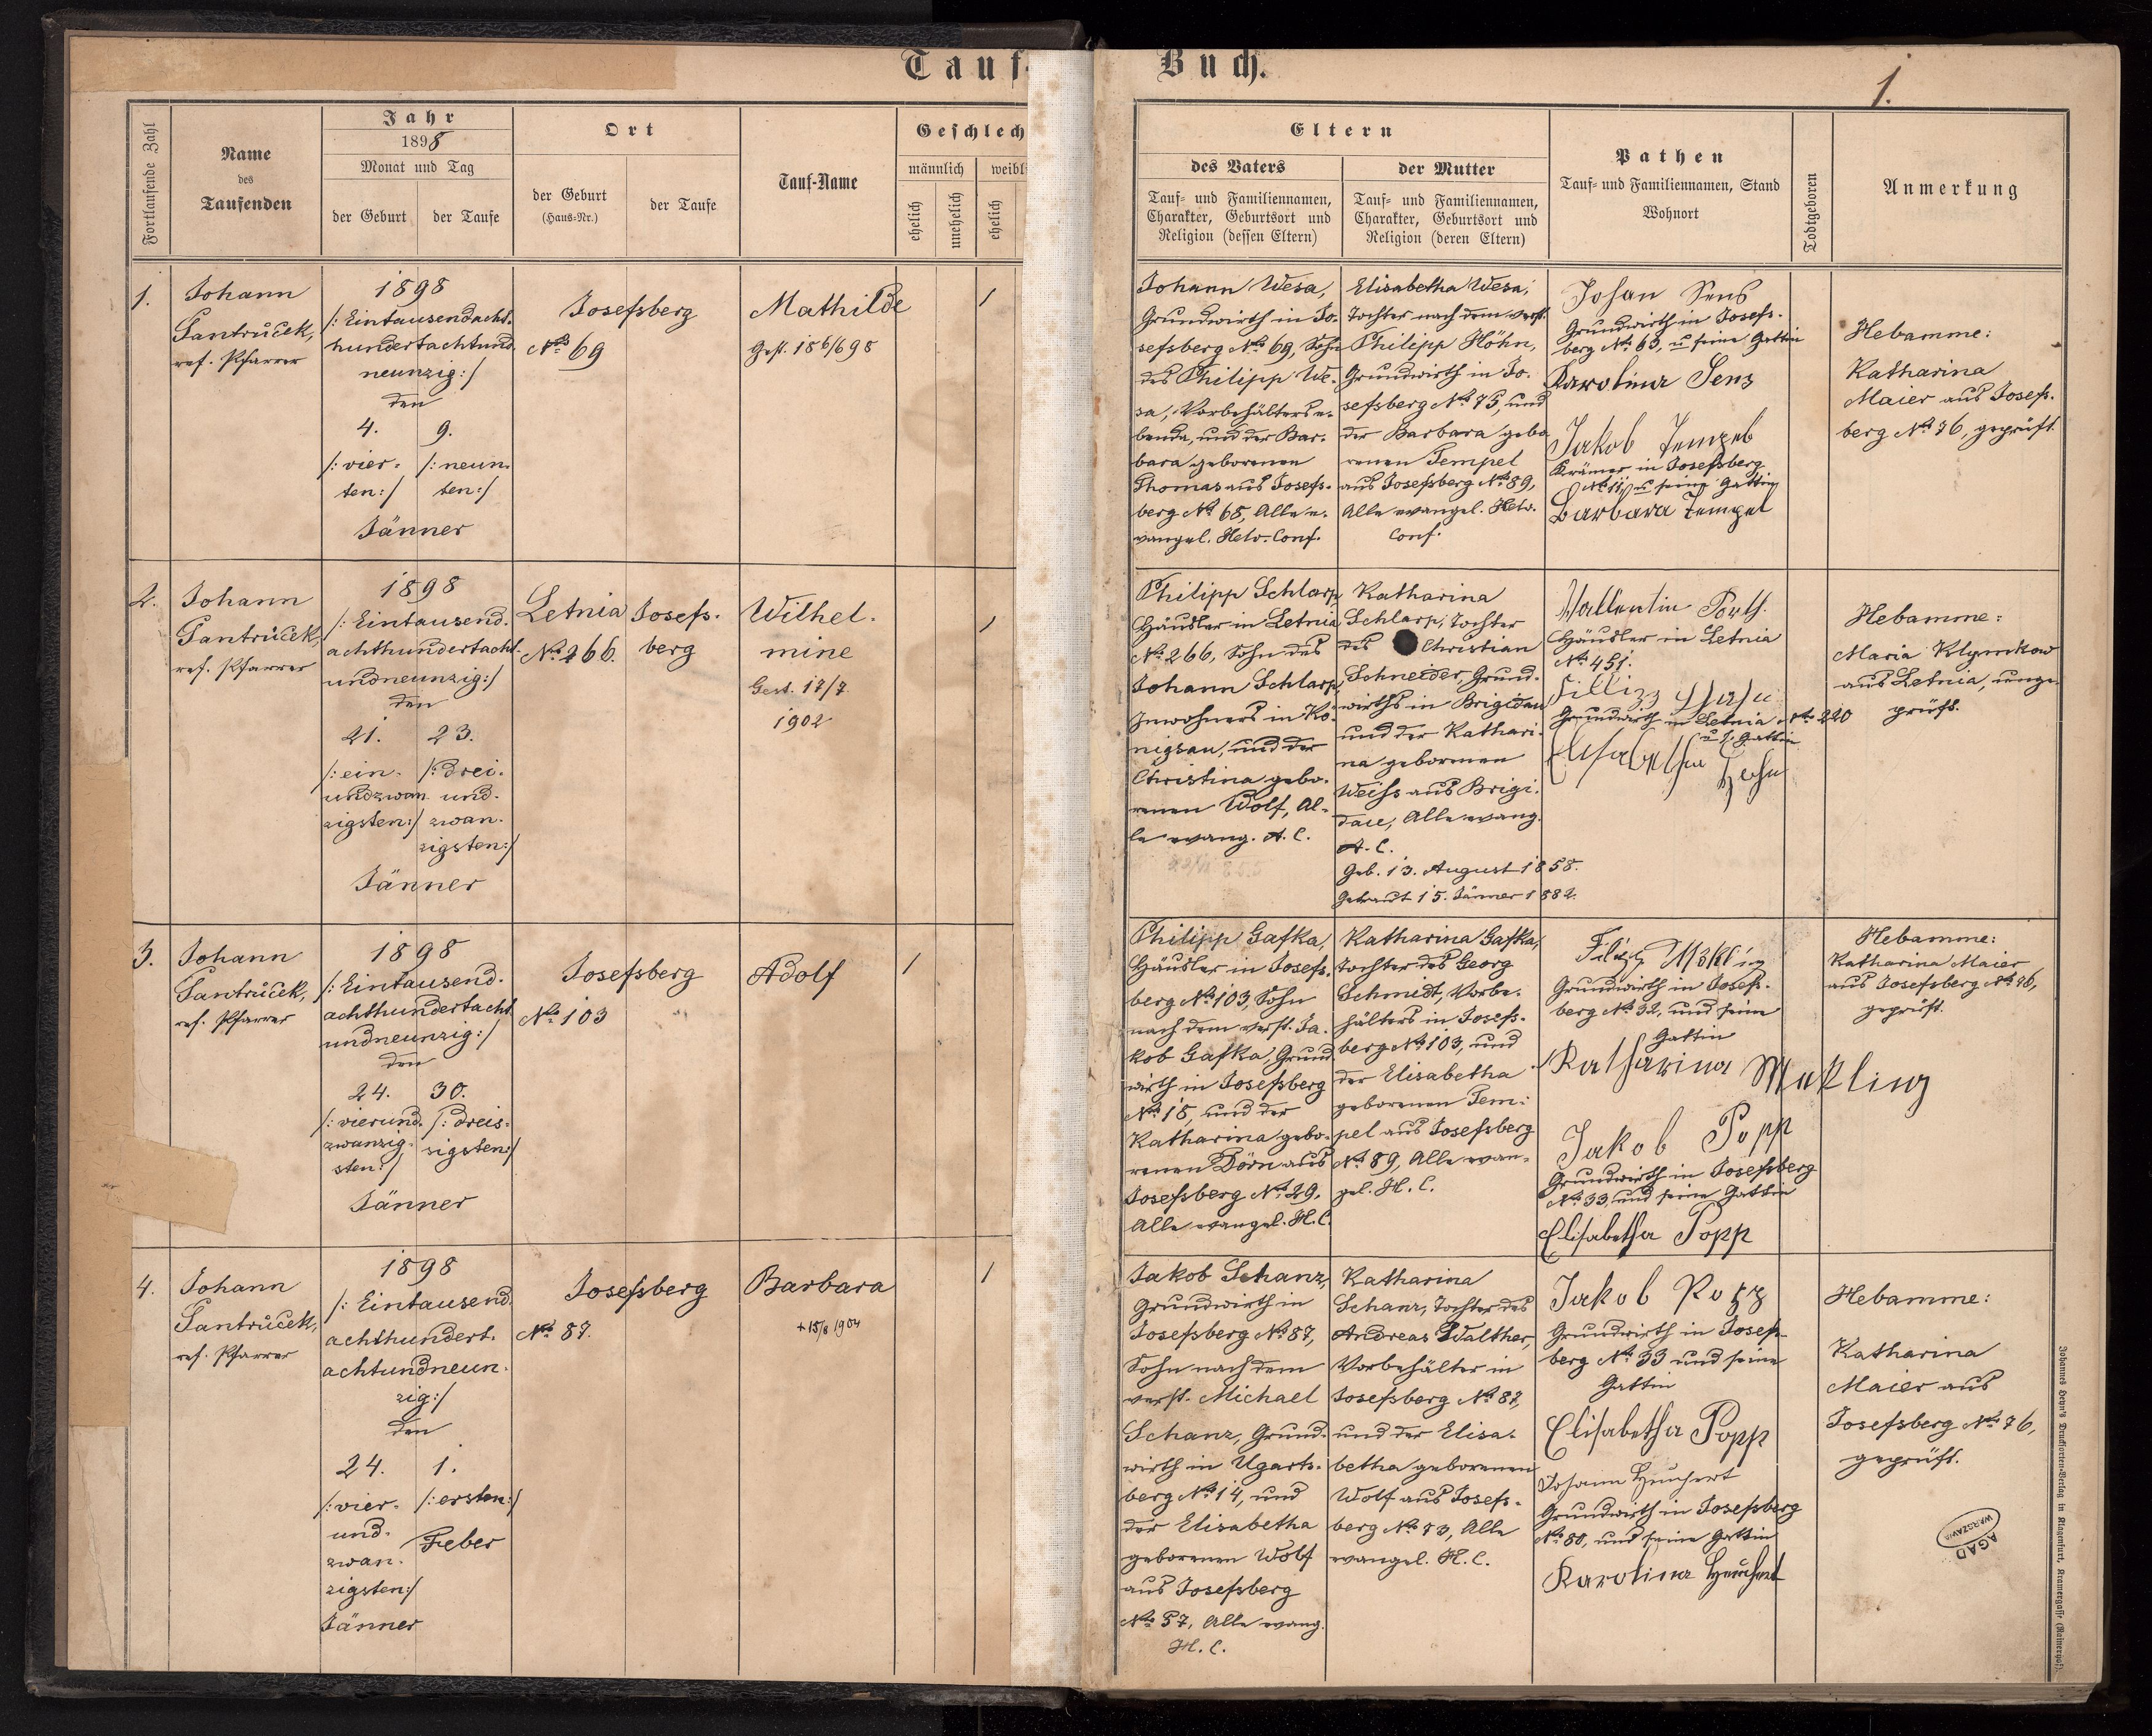 Tauf-Buch.
1.
Fortlaufende Zahl
Name
des
Taufenden
Jahr
1898
Monat und Tag
der Geburt
der Taufe
Ort
der Geburt
(Haus-Nr.)
der Taufe
Tauf-Name
Geschlech
männlich
weibl
ehelich
unehelich
ehelich
Eltern
des Vaters
Tauf- und Familiennamen,
Charakter, Geburtsort und
Religion (dessen Eltern)
der Mutter
Tauf- und Familiennamen,
Charakter, Geburtsort und
Religion (deren Eltern)
Pathen
Tauf- und Familiennamen, Stand
Wohnort
Todtgeboren
Anmerkung
1.
Johann
Santrůček,
ref. Pfarrer
1898
/: Eintausendacht-
hundertachtund
neunzig :/
den
4.
/: vier-
ten :/
9.
/: neun-
ten :/
Jänner
Josefsberg
No 69
Mathilde
Gest. 18 6/6 98
1
Johann Wesa,
Grundwirth in Jo-
sefsberg No 69, Sohn
des Philipp We-
sa, Vorbehälters e-
benda, und der Bar-
bara geborenen
Thomas aus Josefs-
berg No 68, Alle e-
vangel. Helv. Conf.
Elisabetha Wesa,
Tochter nach dem verst.
Philipp Höhn,
Grundwirth in Jo-
sefsberg No 75, und
der Barbara gebo
renen Tempel
aus Josefsberg No 89,
Alle evangel. Helv.
Conf.
Johan Sens
Grundwirth in Josefs-
berg No 63, u seine Gattin
Karolina Sens
Jakob Tempel
Krämer in Josefsberg
No 11, u seine Gattin
Barbara Tempel
Hebamme:
Katharina
Maier aus Josefs-
berg No 76, geprüft.
2.
Johann
Santrůček,
ref. Pfarrer
1898
/: Eintausend-
achthundertacht-
undneunzig :/
den
21.
/: ein-
undzwan
zigsten :/
23.
/: drei-
und-
zwan-
zigsten :/
Jänner
Letnia
No 266.
Josefs-
berg
Wilhel-
mine
Gest. 17/7
1902
1
Philipp Schlarp
Häusler in Letnia
No 266, Sohn des
Johann Schlarp,
Inwohners in Kö-
nigsau, und der
Christina gebo-
renen Wolf, Al-
le evang. A. C.
Katharina
Schlarp, Tochter
des Christian
Schneider, Grund-
wirths in Brigidau
und der Kathari-
na geborenen
Weihs aus Brigi-
dau, Alle evang.
A. C.
Geb. 13. August 1858.
Getraut 15. Jänner 1882.
Wallentin Porth.
Häusler in Letnia
No 451.
Grundwirth in Letnia No 220
u s. Gattin
Elisabetha
Hebamme:
Maria Klymkow
aus Letnia, unge-
prüft.
3.
Johann
Santrůček,
ref. Pfarrer
1898
/: Eintausend-
achthundertacht
undneunzig :/
den
24.
/: vierund-
zwanzig-
sten :/
30.
/: dreis-
sigsten :/
Jänner
Josefsberg
No 103
Adolf
1
Philipp Gafka,
Häusler in Josefs-
berg No 103, Sohn
nach dem verst. Ja-
kob Gafka, Grund-
wirth in Josefsberg
No 18, und der
Katharina gebo-
renen Dörn aus
Josefsberg No 29.
Alle evangel. H. C.
Katharina Gafka,
Tochter des Georg
Schmedt, Vorbe-
hälters in Josefs-
berg No 103, und
der Elisabetha
geborenen Tem-
pel aus Josefsberg
No 89, Alle evan-
gel. H. C.
Grundwirth in Josefs-
berg No 32, und seine
Gattin
Katharina Mekling
Jakob Popp
Grundwirth in Josefsberg
No 33, und seine Gattin
Elisabetha Popp
Hebamme:
Katharina Maier
aus Josefsberg No 76,
geprüft.
4.
Johann
Santrůček,
ref. Pfarrer
1898
/: Eintausend-
achthundert-
achtundneun-
zig :/
den
24.
/: vier-
und-
zwan-
zigsten :/
Jänner
1.
/: ersten :/
Feber
Josefsberg
No 87.
Barbara
+ 15/8 1904
1
Jakob Schanz,
Grundwirth in
Josefsberg No 87,
Sohn nach dem
verst. Michael
Schanz, Grund-
wirth in Ugarts-
berg No 14, und
der Elisabetha
geborenen Wolf
aus Josefsberg
No 57, Alle evang.
H. C.
Katharina
Schanz, Tochter des
Andreas Walther,
Vorbehälter in
Josefsberg No 87,
und der Elisa-
betha geborenen
Wolf aus Josefs-
berg No 73, Alle
evangel. H. C.
Jakob Popp
Grundwirth in Josefs-
berg No 33 und seine
Gattin
Elisabetha Popp
Johann Heuchert
Grundwirth in Josefsberg
No 80, und seine Gattin
Karolina Heuchert
Hebamme:
Katharina
Maier aus
Josefsberg No 76,
geprüft.
AGAD
WARSZAWA
Johannes Heyn's Drucksorten-Verlag in Klagenfurt, Kramergasse (Rainerhof).